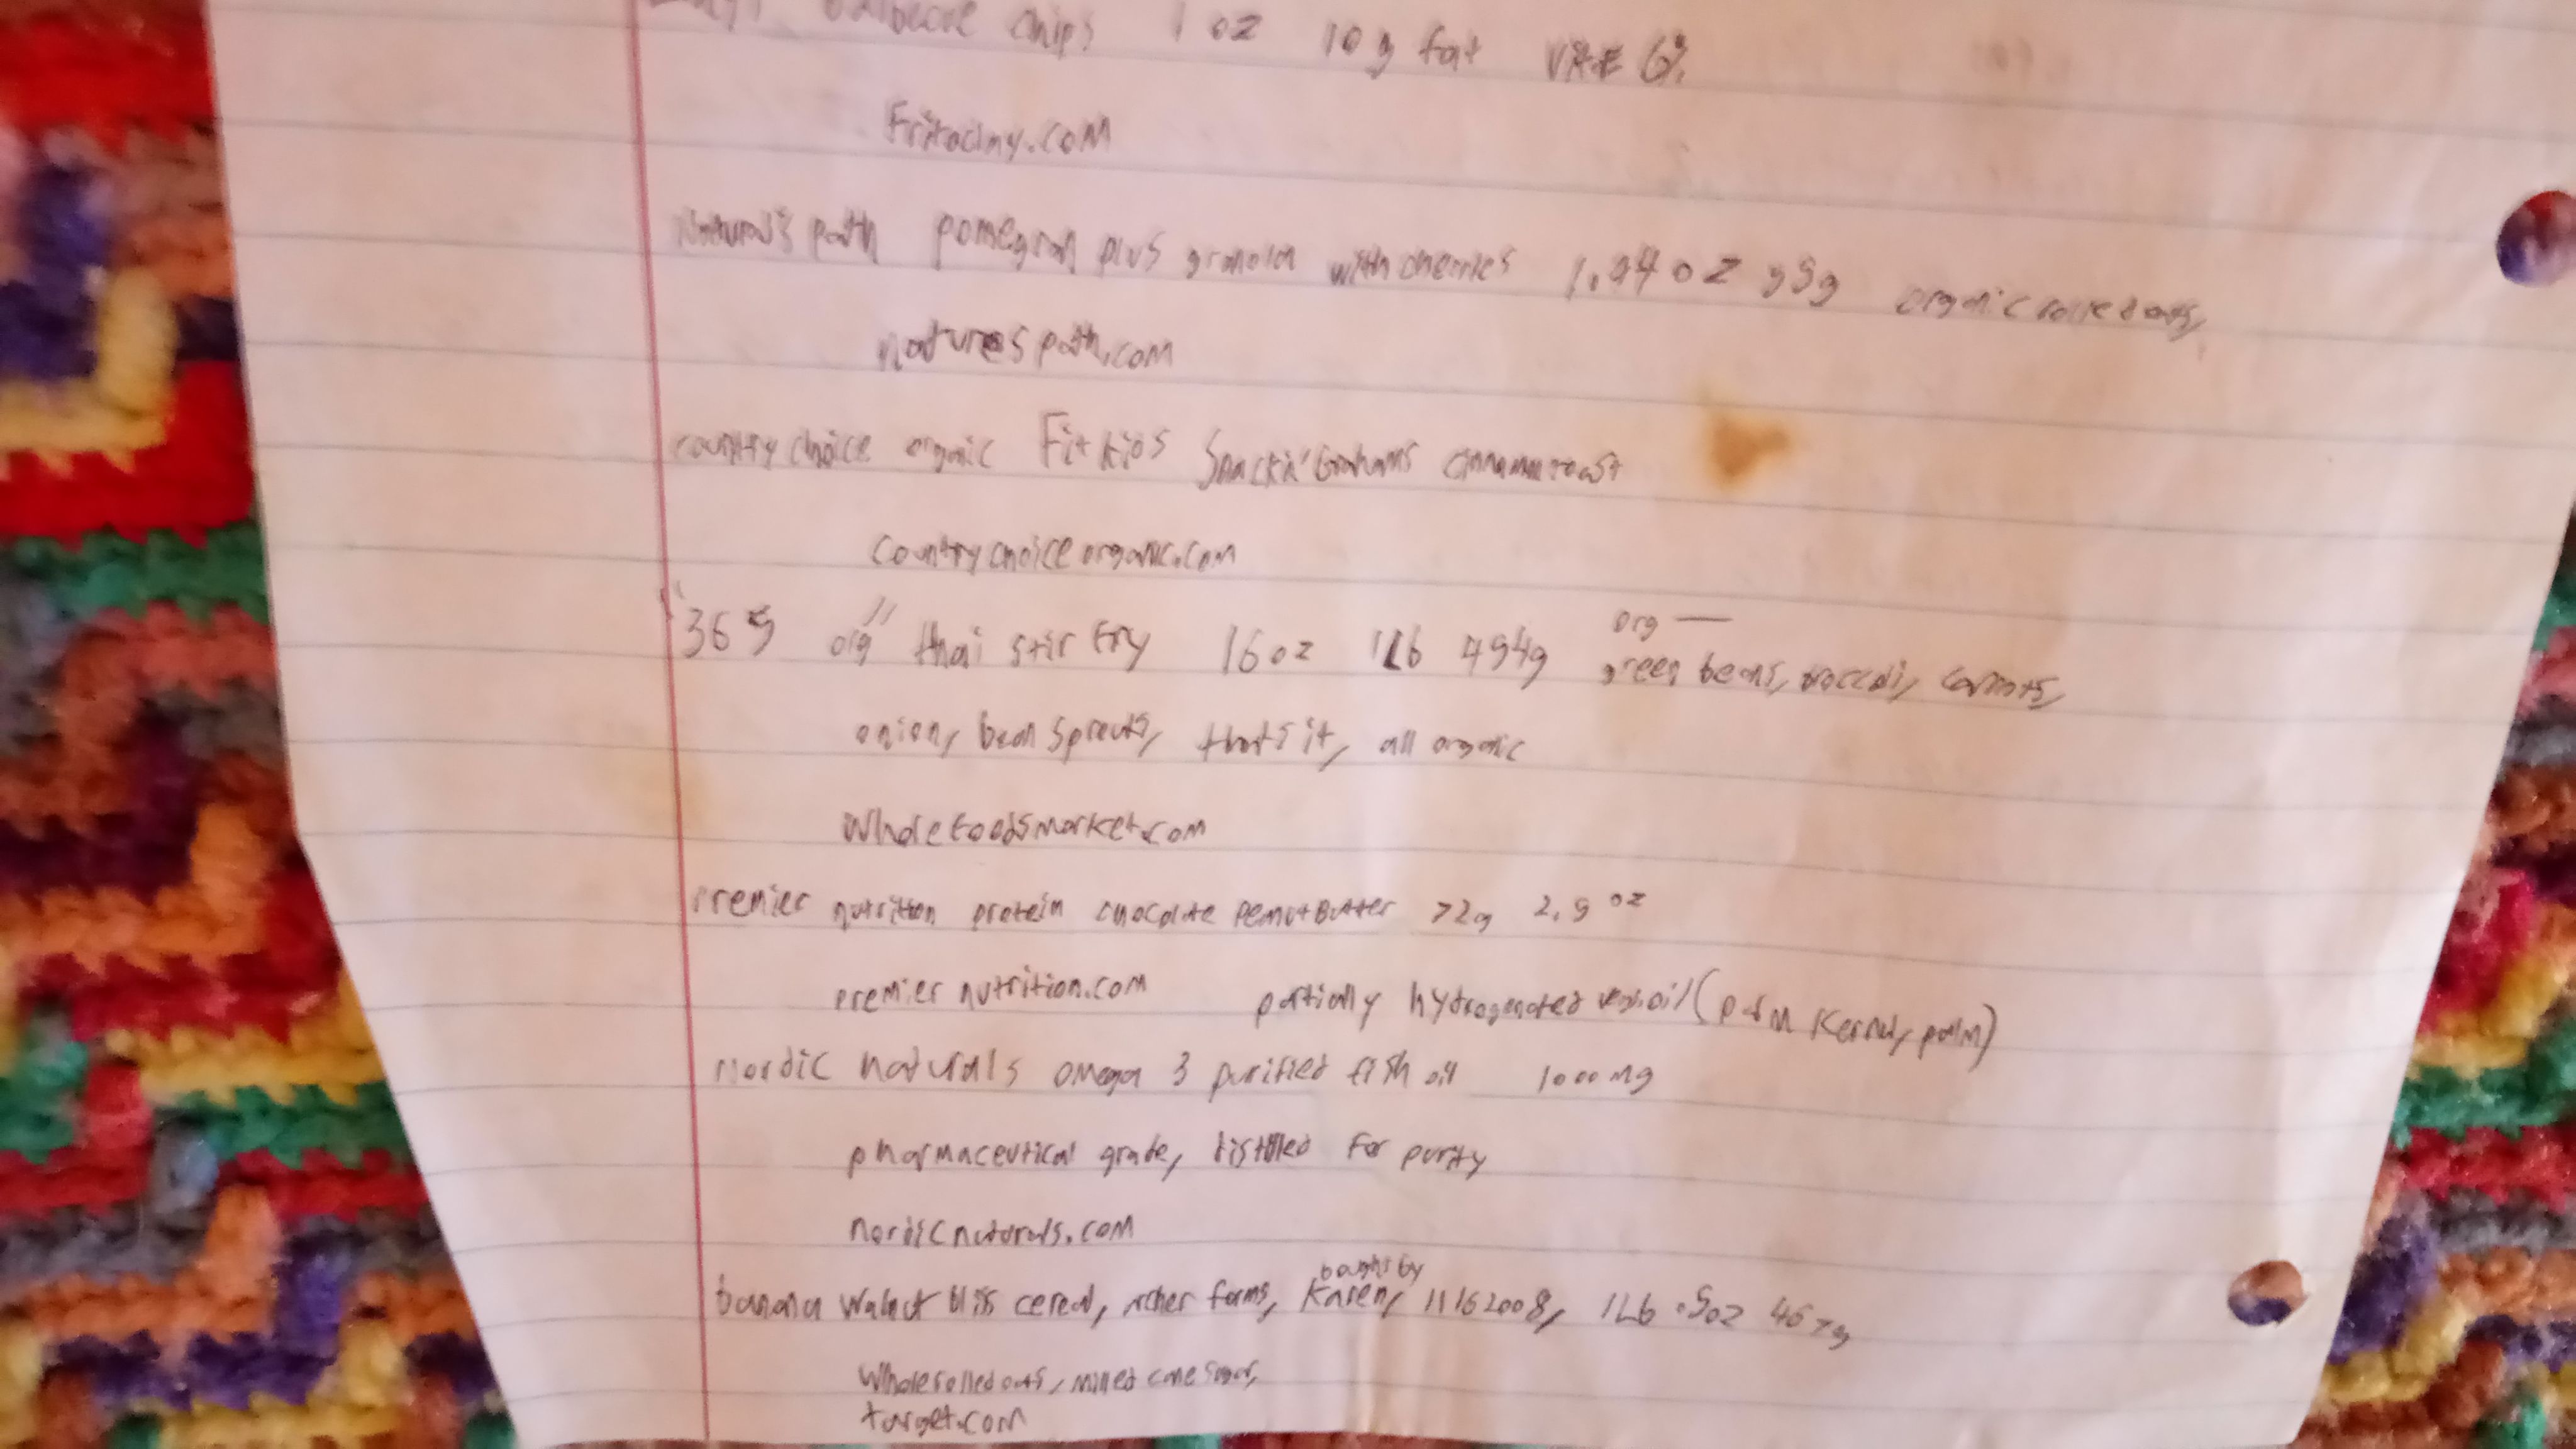 barbecue chips 1 oz 10 g fat Vit E 6%
Fritoclay.com
Nature's path pomegran plus granola with cherries 1.94 oz 55g organic rolled oats,
naturespath.com
country choice organic Fit kids Snackin' Grahams cinnamon toast
countrychoiceorganic.com
"365 org" thai stir fry 16 oz 1Lb 454g org —
green beans, broccoli, carrots,
onion, bean sprouts, that's it, all organic
wholefoodsmarket.com
premier nutrition protein chocolate peanut butter 72g 2.5 oz
premiernutrition.com partially hydrogenated veg. oil (palm kernel, palm)
Nordic naturals omega 3 purified fish oil 1000 mg
pharmaceutical grade, distilled for purity
nordicnaturals.com
bought by
banana walnut bliss cereal, archer farms, Karen, 11162008, 1Lb .5oz 467g
whole rolled oats, milled cane sugar,
target.com